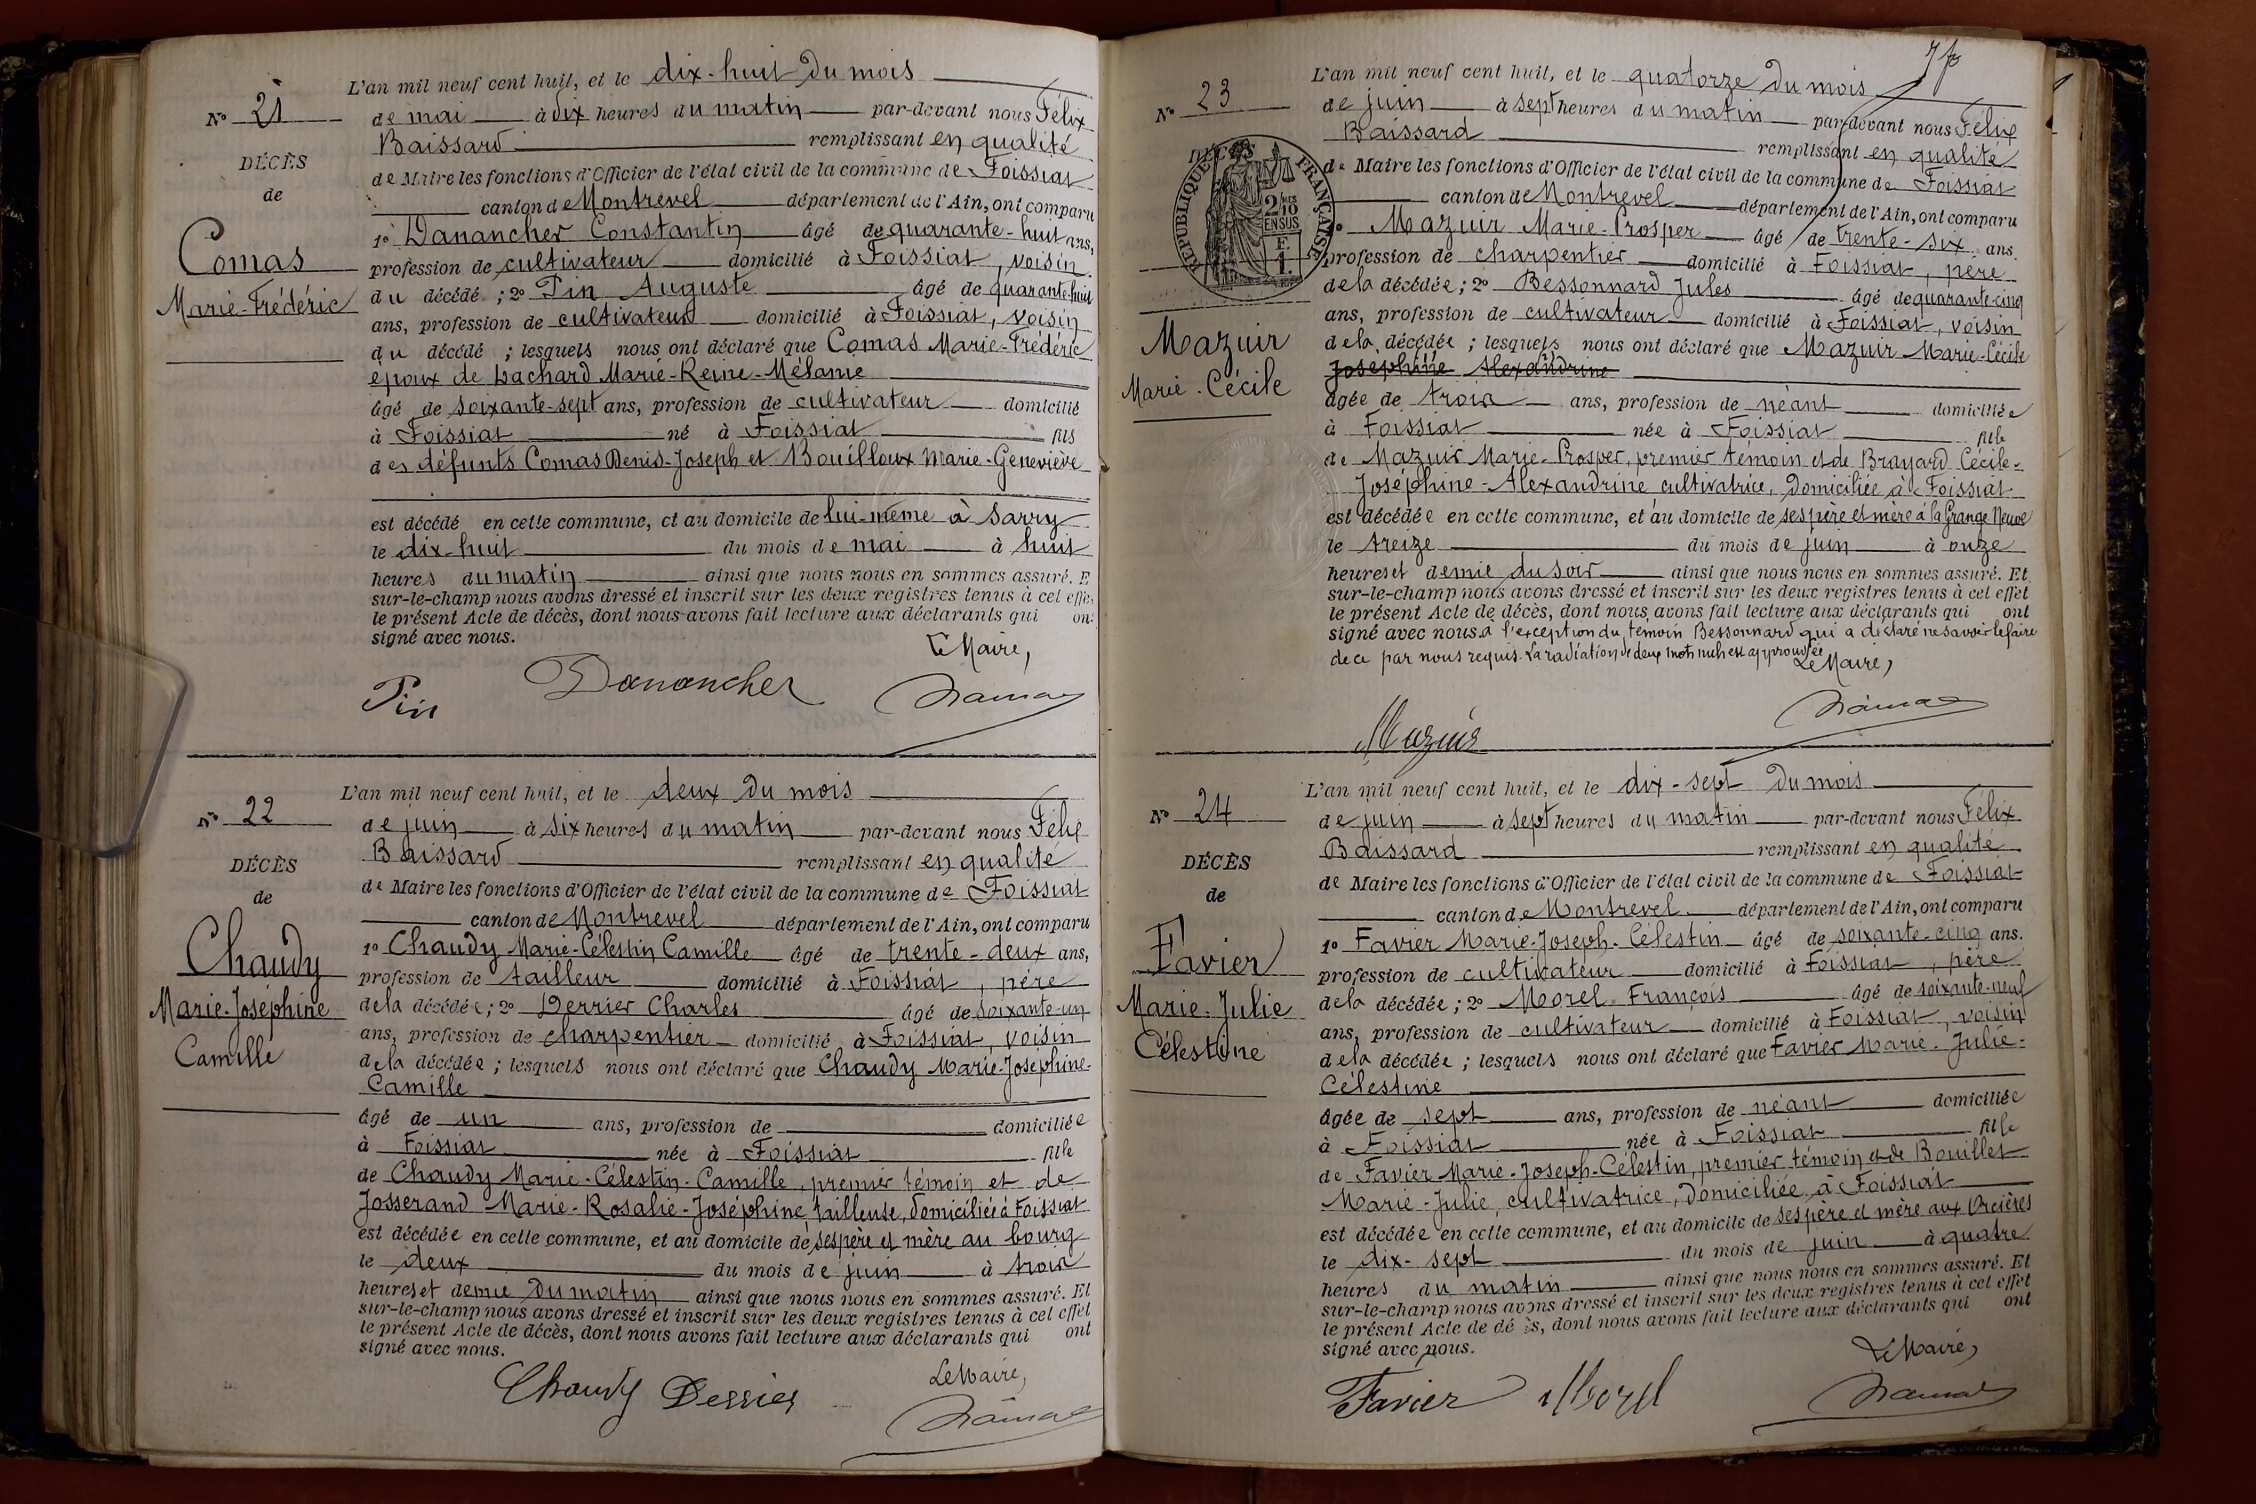 L'an mil neuf cent huit, et le dix-huit du mois
No 21
de mai à dix heures du matin par-devant nous Félix
Baissard remplissant en qualité
DÉCÈS
de Maire les fonctions d'Officier de l'état civil de la commune de Foissiat
de
canton de Montrevel département de l'Ain, ont comparu
1o Danancher Constantin âgé de quarante-huit ans,
Comas
profession de cultivateur domicilié à Foissiat, voisin
Marie-Frédéric
du décédé ; 2o Pin Auguste âgé de quarante-huit
ans, profession de cultivateur domicilié à Foissiat, voisin
du décédé ; lesquels nous ont déclaré que Comas Marie-Frédéric
époux de Lachard Marie-Reine-Mélanie
âgé de soixante-sept ans, profession de cultivateur domicilié
à Foissiat né à Foissiat fils
des défunts Comas Denis-Joseph et Bouilloux Marie-Geneviève
est décédé en cette commune, et au domicile de lui-même à Sarry
le dix-huit du mois de mai à huit
heures du matin ainsi que nous nous en sommes assuré. E
sur-le-champ nous avons dressé et inscrit sur les deux registres tenus à cet effe
le présent Acte de décès, dont nous avons fait lecture aux déclarants qui on
signé avec nous.
Le Maire,
Pin Danancher
L'an mil neuf cent huit, et le deux du mois
No 22
de juin à six heures du matin par-devant nous Félix
Baissard remplissant en qualité
DÉCÈS
de Maire les fonctions d'Officier de l'état civil de la commune de Foissiat
de
canton de Montrevel département de l'Ain, ont comparu
1o Chaudy Marie-Célestin Camille âgé de trente-deux ans,
Chaudy
profession de tailleur domicilié à Foissiat, père
Marie-Joséphine
de la décédée ; 2o Derrier Charles âgé de soixante-un
ans, profession de charpentier domicilié à Foissiat, voisin
Camille
de la décédée ; lesquels nous ont déclaré que Chaudy Marie-Joséphine-
Camille
âgé de un ans, profession de domiciliée
à Foissiat née à Foissiat fille
de Chaudy Marie-Célestin-Camille, premier témoin et de
Josserand Marie-Rosalie-Joséphine, tailleuse, domiciliée à Foissiat
est décédée en cette commune, et au domicile de ses père et mère au bourg
le deux du mois de juin à trois
heures et demie du matin ainsi que nous nous en sommes assuré. Et
sur-le-champ nous avons dressé et inscrit sur les deux registres tenus à cet effet
le présent Acte de décès, dont nous avons fait lecture aux déclarants qui ont
signé avec nous.
Le Maire,
Chaudy Derrier
L'an mil neuf cent huit, et le quatorze du mois
No 23
de juin à sept heures du matin par-devant nous Félix
Baissard remplissant en qualité
DÉCÈS
RÉPUBLIQUE FRANÇAISE
2 10
EN SUS
F.
1.
de Maire les fonctions d'Officier de l'état civil de la commune de Foissiat
canton de Montrevel département de l'Ain, ont comparu
Mazuir Marie-Prosper âgé de trente-six ans.
profession de charpentier domicilié à Foissiat, père
de la décédée ; 2o Bessonnard Jules âgé de quarante-cinq
ans, profession de cultivateur domicilié à Foissiat, voisin
Mazuir
de la décédée ; lesquels nous ont déclaré que Mazuir Marie-Cécile
Joséphine Alexandrine
Marie-Cécile
âgée de trois ans, profession de néant domiciliée
à Foissiat née à Foissiat fille
de Mazuir Marie-Prosper, premier témoin et de Brayard Cécile-
Joséphine-Alexandrine, cultivatrice, domiciliée à Foissiat
est décédée en cette commune, et au domicile de ses père et mère à la Grange Neuve
le treize du mois de juin à onze
heures et demie du soir ainsi que nous nous en sommes assuré. Et
sur-le-champ nous avons dressé et inscrit sur les deux registres tenus à cet effet
le présent Acte de décès, dont nous avons fait lecture aux déclarants qui ont
signé avec nous à l'exception du témoin Bessonnard qui a déclaré ne savoir le faire
de ce par nous requis. La radiation de deux mots nuls est approuvée
Le Maire,
Mazuir
L'an mil neuf cent huit, et le dix-sept du mois
No 24
de juin à sept heures du matin par-devant nous Félix
Baissard remplissant en qualité
DÉCÈS
de Maire les fonctions d'Officier de l'état civil de la commune de Foissiat
de
canton de Montrevel département de l'Ain, ont comparu
1o Favier Marie-Joseph-Célestin âgé de soixante-cinq ans.
Favier
profession de cultivateur domicilié à Foissiat, père
Marie-Julie
de la décédée ; 2o Morel François âgé de soixante-neuf
ans, profession de cultivateur domicilié à Foissiat, voisin
Célestine
de la décédée ; lesquels nous ont déclaré que Favier Marie-Julie-
Célestine
âgée de sept ans, profession de néant domiciliée
à Foissiat née à Foissiat fille
de Favier Marie-Joseph-Célestin, premier témoin et de Bouillet
Marie-Julie, cultivatrice, domiciliée à Foissiat
est décédée en cette commune, et au domicile de ses père et mère aux Orcières
le dix-sept du mois de juin à quatre
heures du matin ainsi que nous nous en sommes assuré. Et
sur-le-champ nous avons dressé et inscrit sur les deux registres tenus à cet effet
le présent Acte de dé ès, dont nous avons fait lecture aux déclarants qui ont
signé avec nous.
Le Maire,
Favier Morel